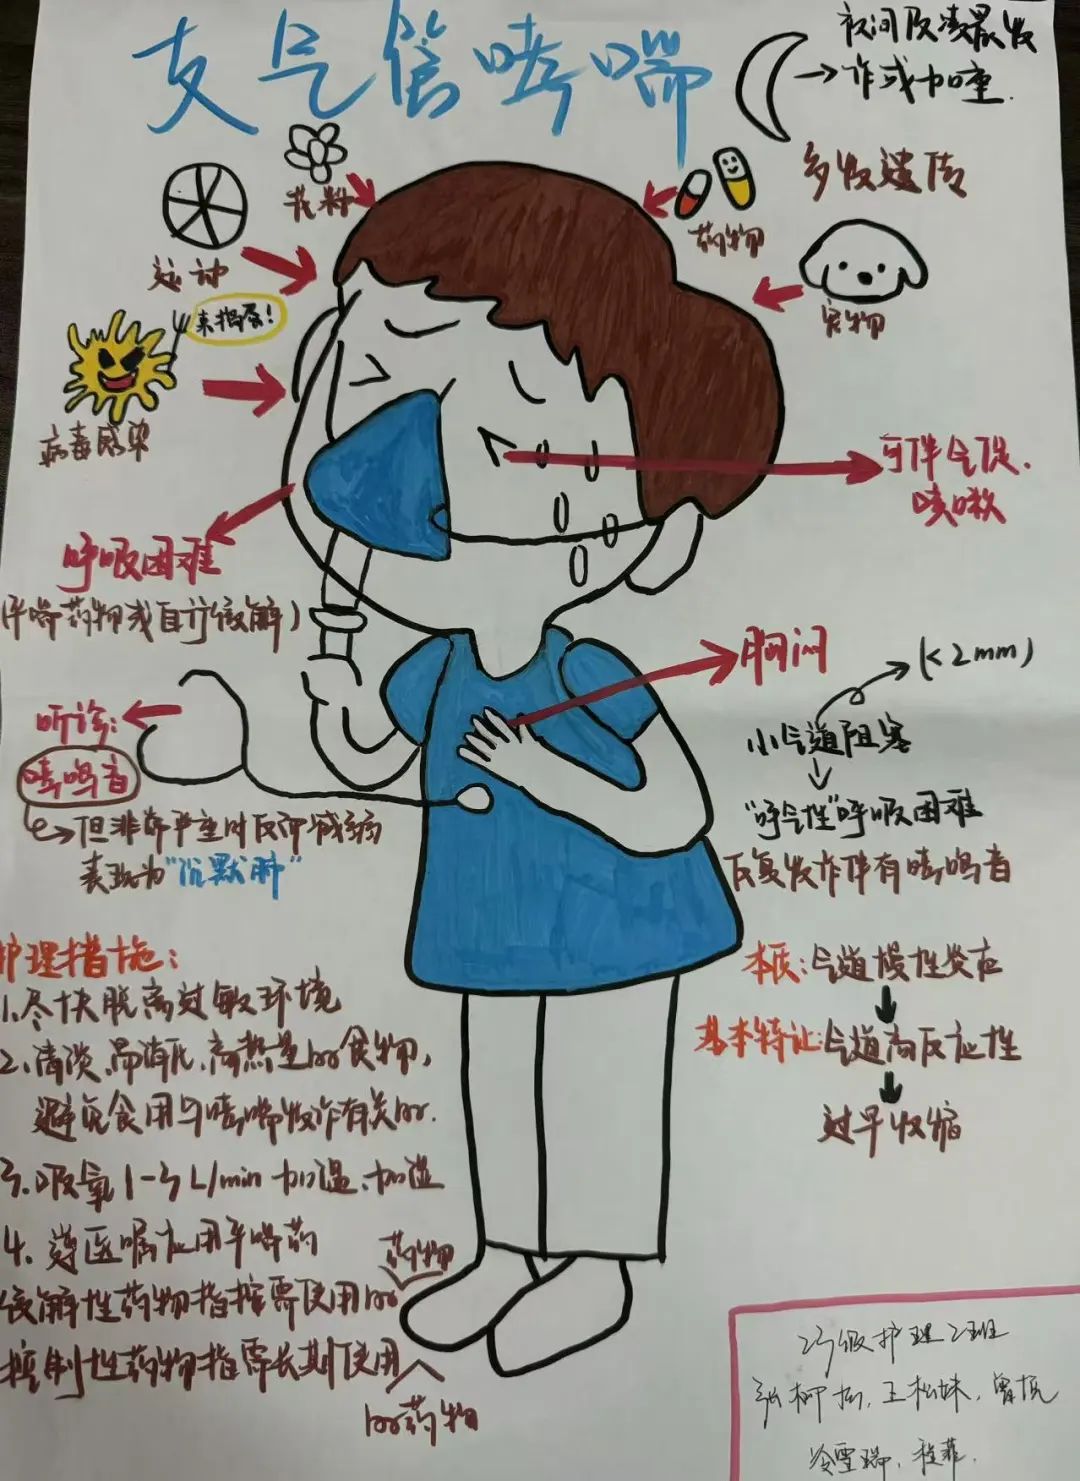 支气管哮喘
夜间及凌晨发
作或加重.
多数遗传
花粉
药物
运动
宠物
来捣蛋!
病毒感染
可伴气促.
咳嗽
呼吸困难
(平喘药物或自行缓解)
胸闷
(<2mm)
小气道阻塞
"呼气性"呼吸困难
反复发作伴有哮鸣音
听诊:
哮鸣音
但非常严重时反而减弱
表现为"沉默肺"
本质:气道慢性炎症
基本特征:气道高反应性
过早收缩
护理措施:
1.尽快脱离过敏环境
2.清淡、易消化、高热量的食物,
避免食用与哮喘发作有关的.
3.吸氧1-3L/min加温、加湿
4.遵医嘱应用平喘药
药物
缓解性药物指按需使用的
控制性药物指需长期使用
的药物
23级护理2班
王松妹,
冷雪瑞、程菲.